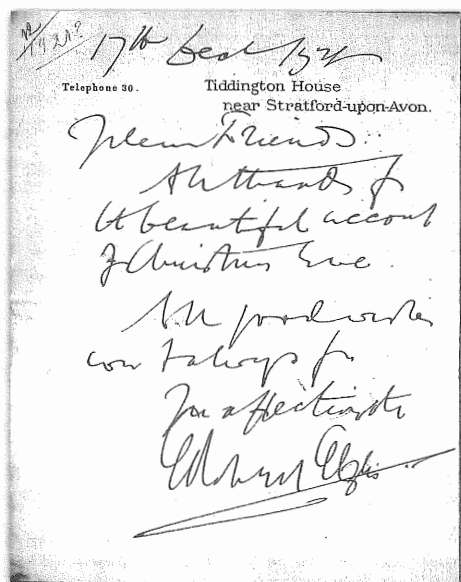 17th Dec
Telephone 30. Tiddington House
near Stratford-upon-Avon.
Friends:
All thanks for
the beautiful account
of Christmas Eve.
All good wishes
now & always
affectionate
Edward Elgar